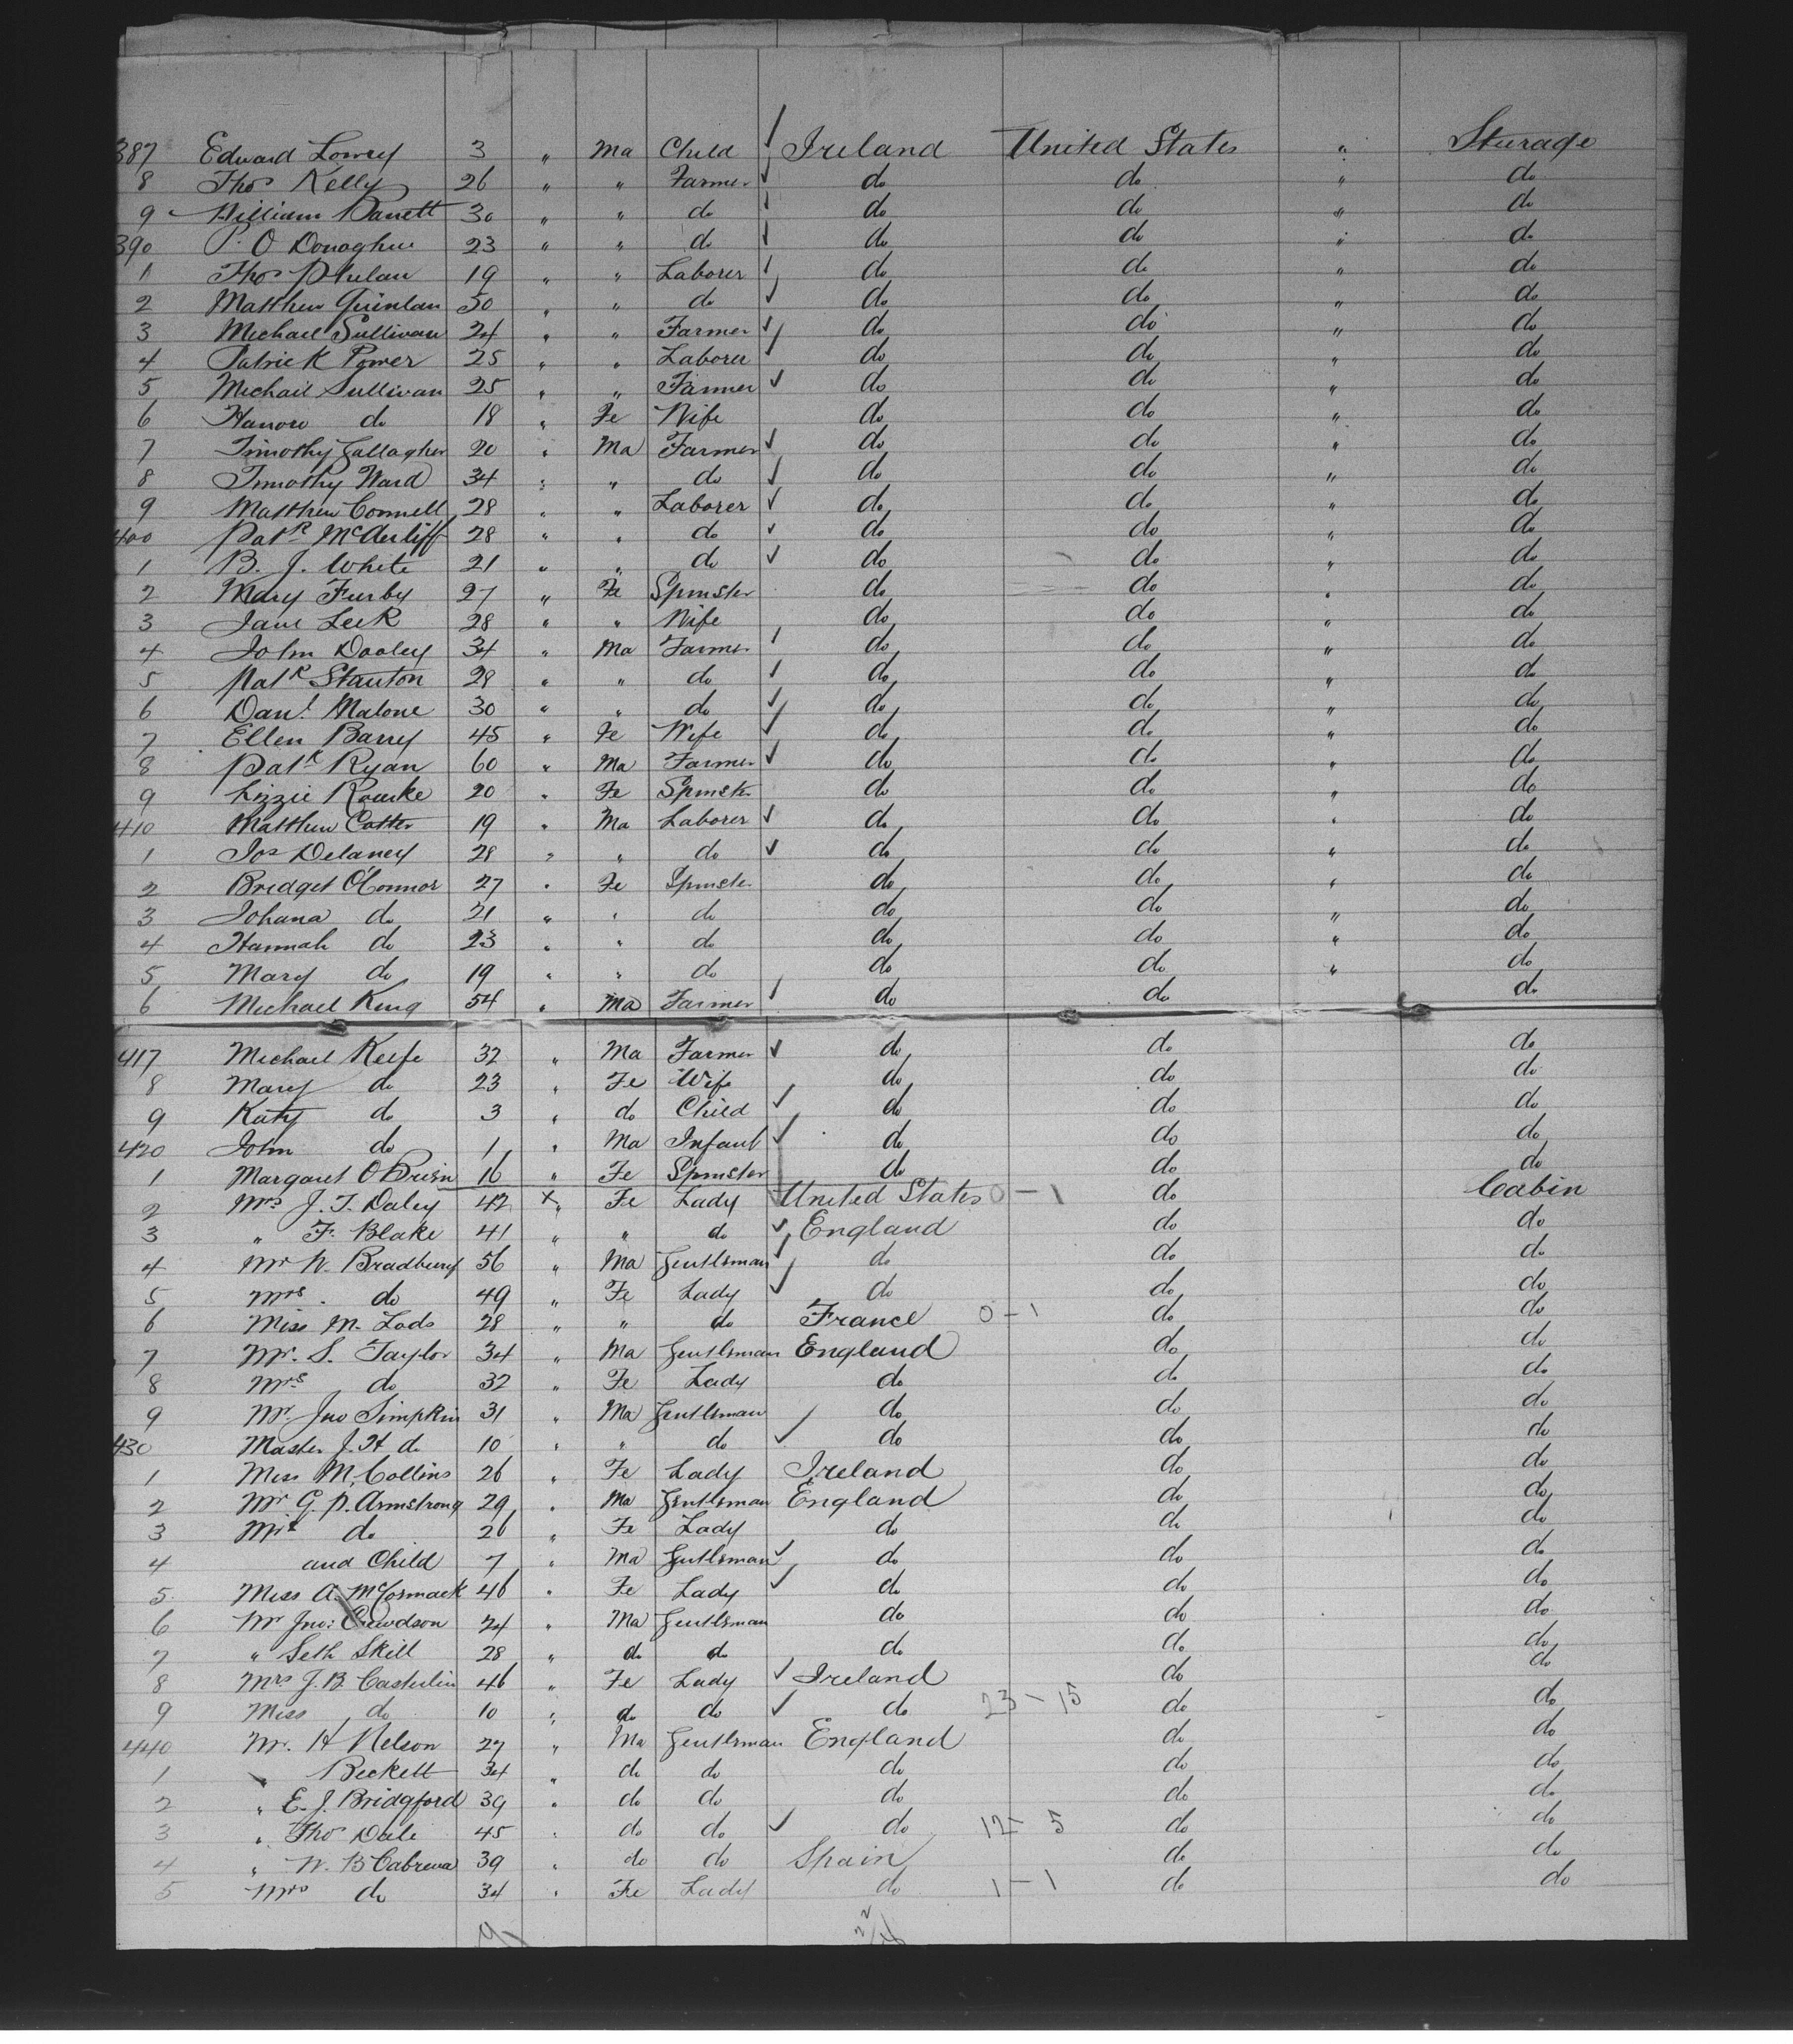 387 Edward Lowry 3 " Ma Child Ireland United States " Sturage
8 Thos Kelly 26 " " Farmer do do " do
9 William Barrett 30 " " do do do " do
390 P. O Donaghue 23 " " do do do " do
1 Thos Phelan 19 " " Laborer do do " do
2 Matthew Quinlan 50 " " do do do " do
3 Michael Sullivan 24 " " Farmer do do " do
4 Patrick Power 25 " " Laborer do do " do
5 Michael Sullivan 25 " " Farmer do do " do
6 Hanoro do 18 " Fe Wife do do " do
7 Timothy Gallagher 20 " Ma Farmer do do " do
8 Timothy Ward 34 " " do do do " do
9 Matthew Connell 28 " " Laborer do do " do
400 Patk McAuliff 28 " " do do do " do
1 B. J. White 21 " " do do do " do
2 Mary Furby 27 " Fe Spinster do do " do
3 Jane Leek 28 " " Wife do do " do
4 John Dooley 34 " Ma Farmer do do " do
5 Patk Stanton 28 " " do do do " do
6 Danl Malone 30 " " do do do " do
7 Ellen Barry 45 " Fe Wife do do " do
8 Patk Ryan 60 " Ma Farmer do do " do
9 Lizzie Rourke 20 " Fe Spinster do do " do
410 Matthew Cotter 19 " Ma Laborer do do " do
1 Jos Delaney 28 " " do do do " do
2 Bridget O'Connor 27 " Fe Spinster do do " do
3 Johana do 21 " " do do do " do
4 Hannah do 23 " " do do do " do
5 Mary do 19 " " do do do " do
6 Michael King 54 " Ma Farmer do do do
417 Michael Keefe 32 " Ma Farmer do do do
8 Mary do 23 " Fe Wife do do do
9 Katy do 3 " do Child do do do
420 John do 1 " Ma Infant do do do
1 Margaret O Brien 16 " Fe Spinster do do do
2 Mrs J. T. Daley 42 x " Fe Lady United States 0-1 do Cabin
3 " F. Blake 41 " " do England do do
4 Mr W. Bradbury 56 " Ma Gentleman do do do
5 Mrs. do 49 " Fe Lady do do do
6 Miss M. Lods 28 " " do France 0-1 do do
7 Mr. S. Taylor 34 " Ma Gentleman England do do
8 Mrs do 32 " Fe Lady do do do
9 Mr. Jno Simpkin 31 " Ma Gentleman do do do
430 Master J. H do 10 " " do do do do
1 Miss M. Collins 26 " Fe Lady Ireland do do
2 Mr G. P. Armstrong 29 " Ma Gentleman England do do
3 Mrs do 26 " Fe Lady do do do
4 and Child 7 " Ma Gentleman do do do
5 Miss A. McCormack 46 " Fe Lady do do do
6 Mr Jno: Crewdson 24 " Ma Gentleman do do do
7 " Seth Skill 28 " do do do do do
8 Mrs J. B. Casterlin 46 " Fe Lady Ireland do do
9 Miss do 10 " do do do 23-15 do do
440 Mr. H Nelson 27 " Ma Gentleman England do do
1 " Beckett 34 " do do do do do
2 " E. J. Bridgford 39 " do do do do do
3 " Thos Dale 45 " do do do 12-5 do do
4 " W. B Cabrera 39 " do do Spain do do
5 Mrs do 34 " Fe Lady do 1-1 do do